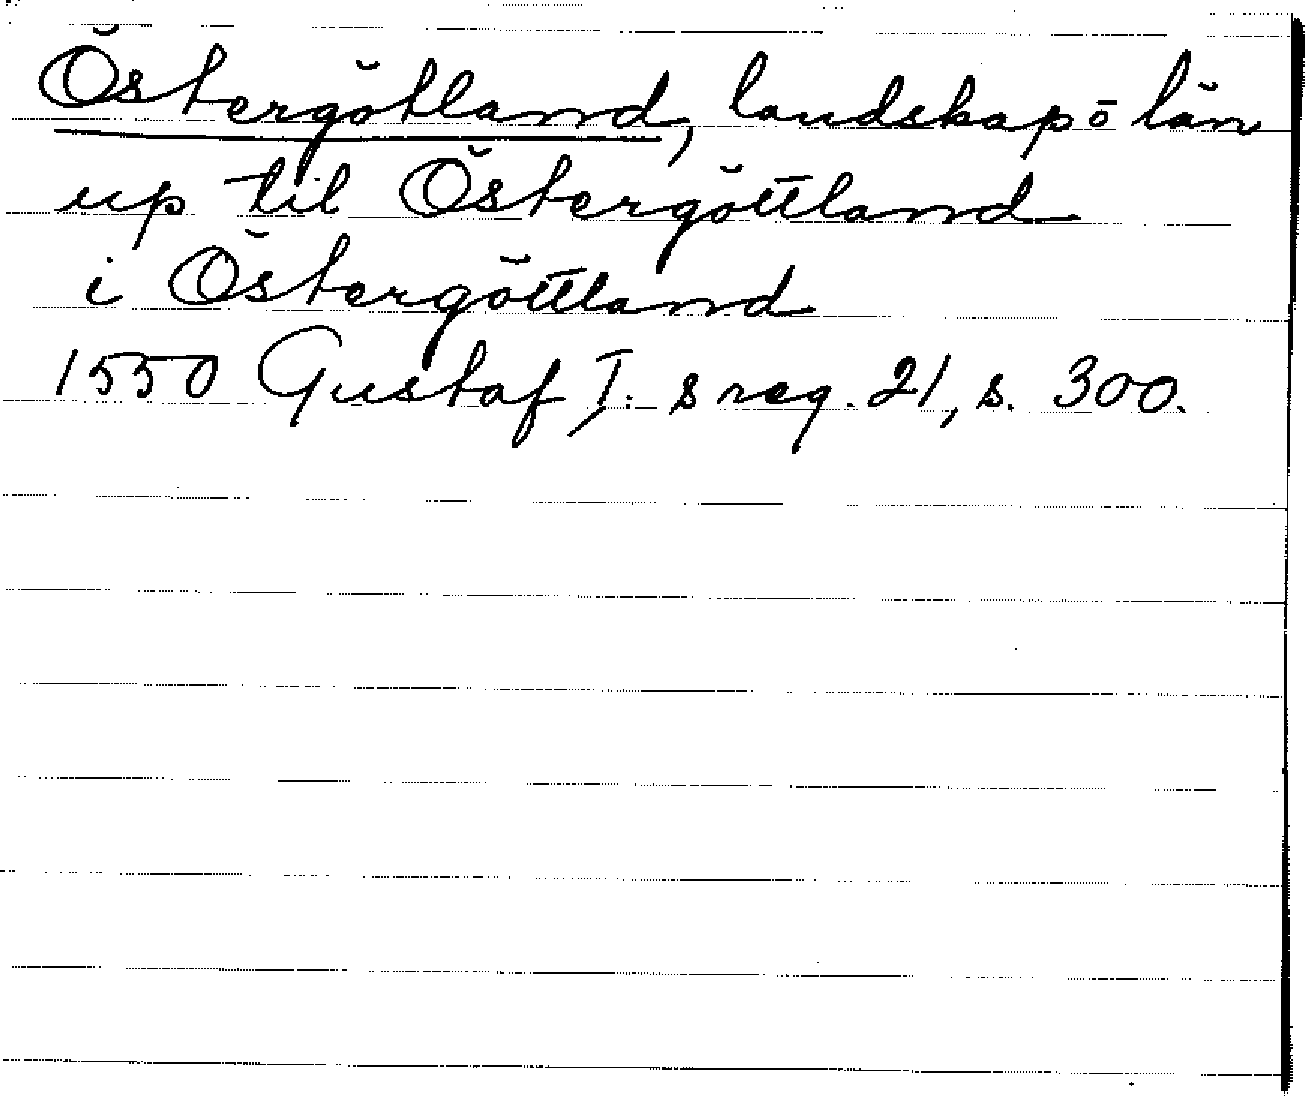 Östergötland, landskap ō län
up til Östergöttland
i Östergöttland
1550 Gustaf I:s reg. 21, s. 300.